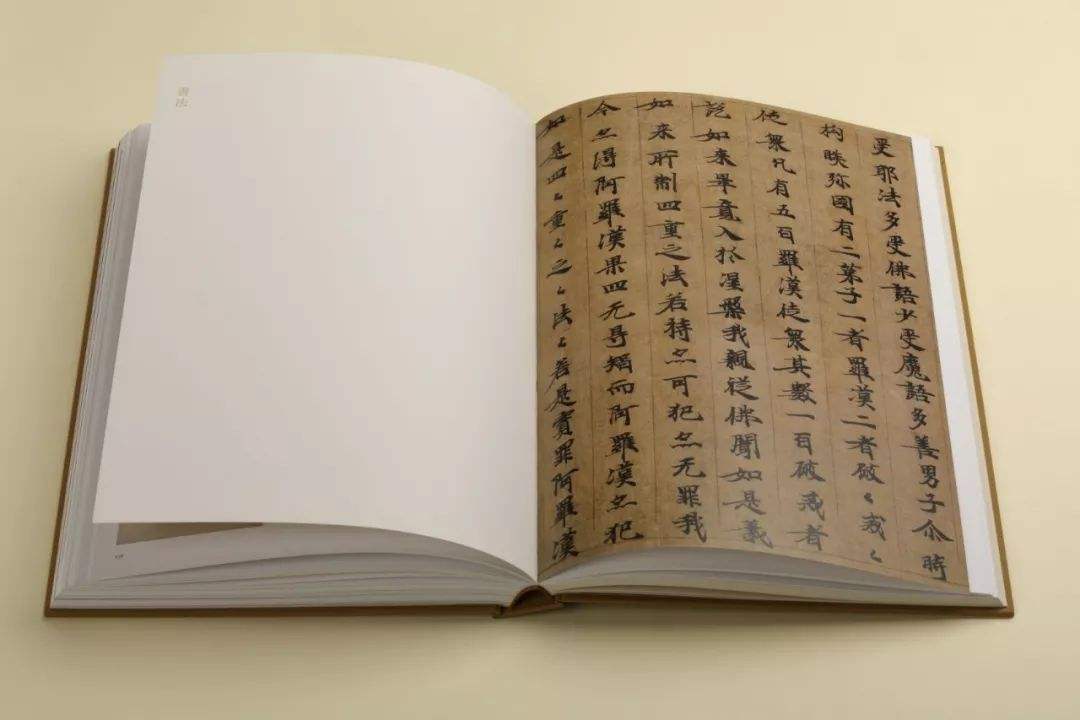 書法
受耶法多受佛語少受魔語多善男子尒時
拘睒弥國有二弟子一者羅漢二者破〻戒〻
徒衆凡有五百羅漢徒衆其數一百破戒者
説如来畢竟入於涅槃我親從佛聞如是義
如来所制四重之法若持亦可犯亦无罪我
今亦得阿羅漢果四无㝵智而阿羅漢亦犯
如是四〻重〻之〻法〻若是實罪阿羅漢